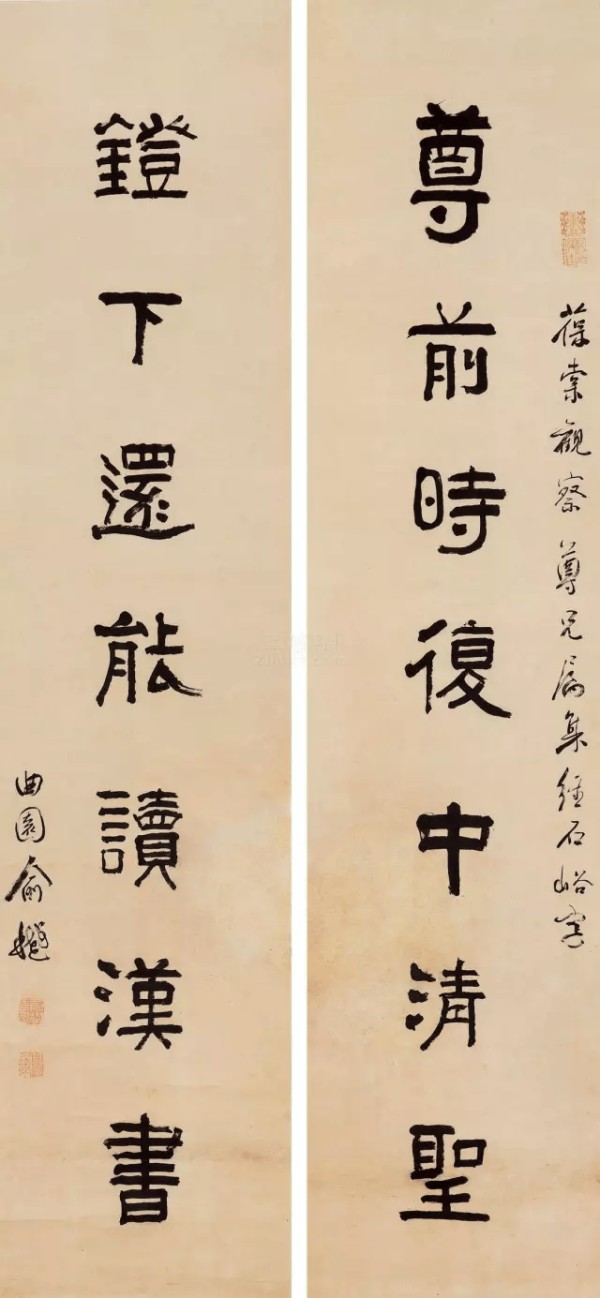 葆棠觀察尊兄属集經石峪字
尊前時復中清聖
鐙下還能讀漢書
曲園俞樾